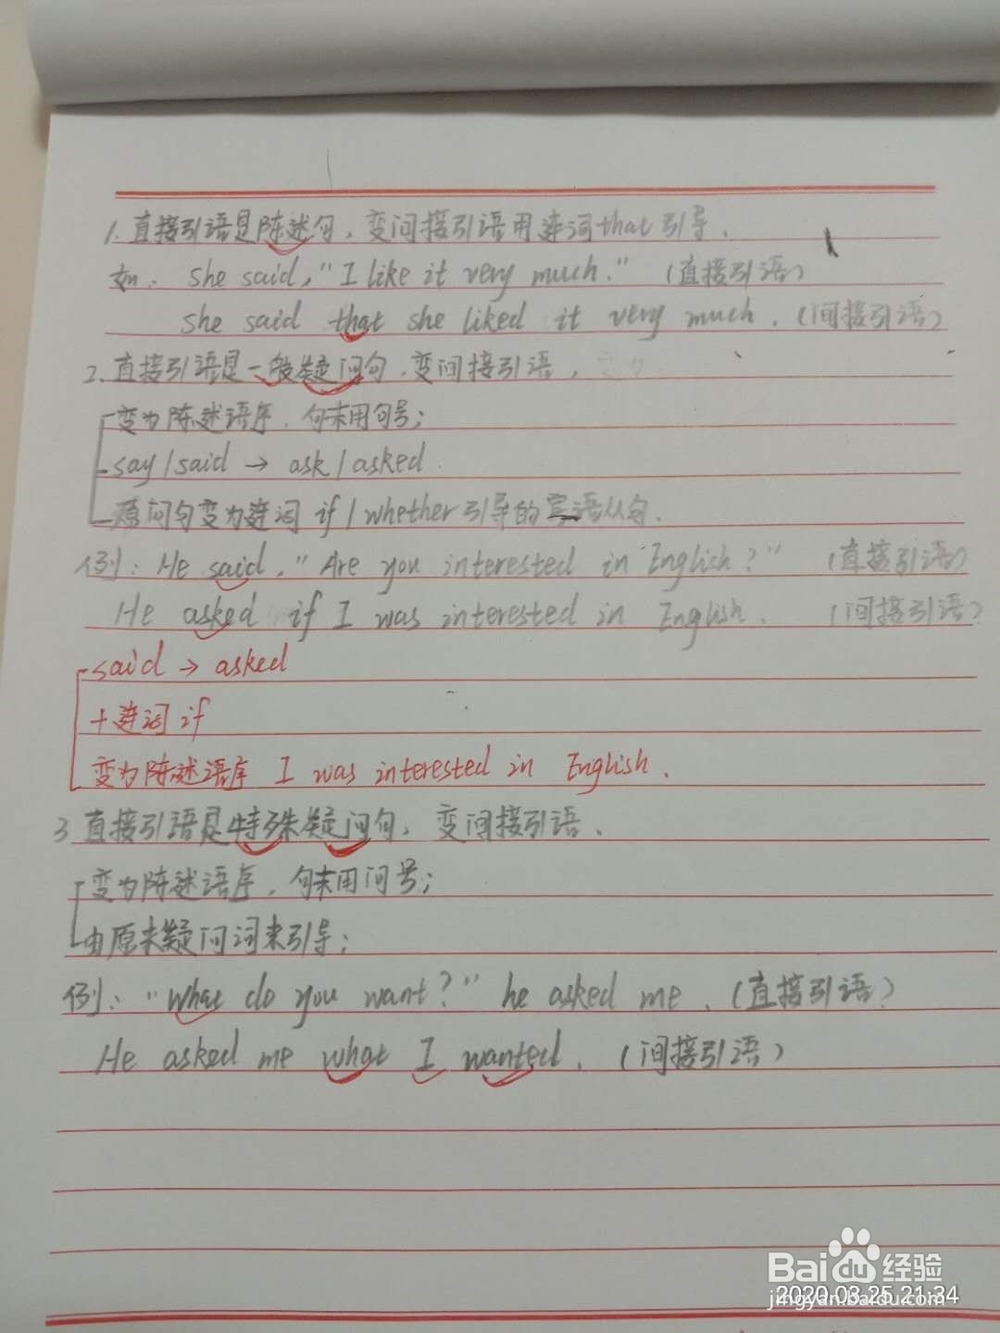 1.直接引语是陈述句,变间接引语用连词that引导.
如. she said,"I like it very much."(直接引语)
she said that she liked it very much.(间接引语)
2.直接引语是一般疑问句,变间接引语,
变为陈述语序,句末用句号;
say/said → ask/asked.
疑问句变为连词 if/whether引导的宾语从句.
例: He said."Are you interested in English?"(直接引语)
He asked if I was interested in English.(间接引语)
said → asked
+连词 if
变为陈述语序 I was interested in English.
3 直接引语是特殊疑问句,变间接引语、
变为陈述语序,句末用问号;
由原来疑问词来引导;
例: "What do you want?" he asked me.(直接引语)
He asked me what I wanted.(间接引语)
Baidu经验
2020.03.25 21:34
jingyan.baidu.com